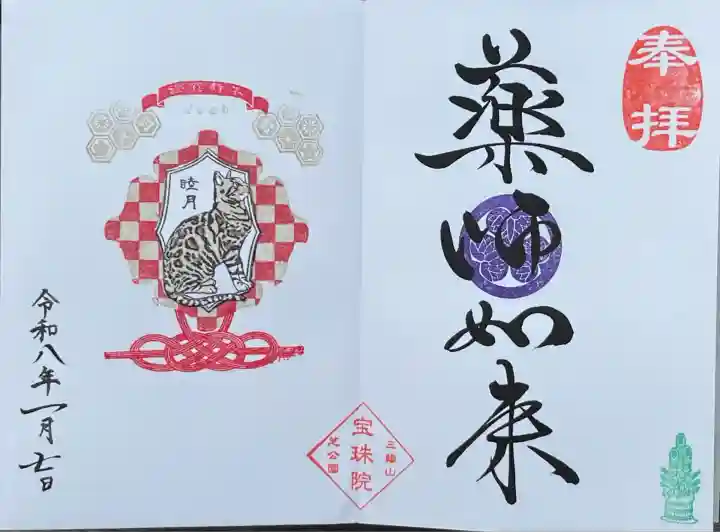 奉拝
薬師如来
三縁山
宝珠院
芝公園
睦月
令和八年一月七日